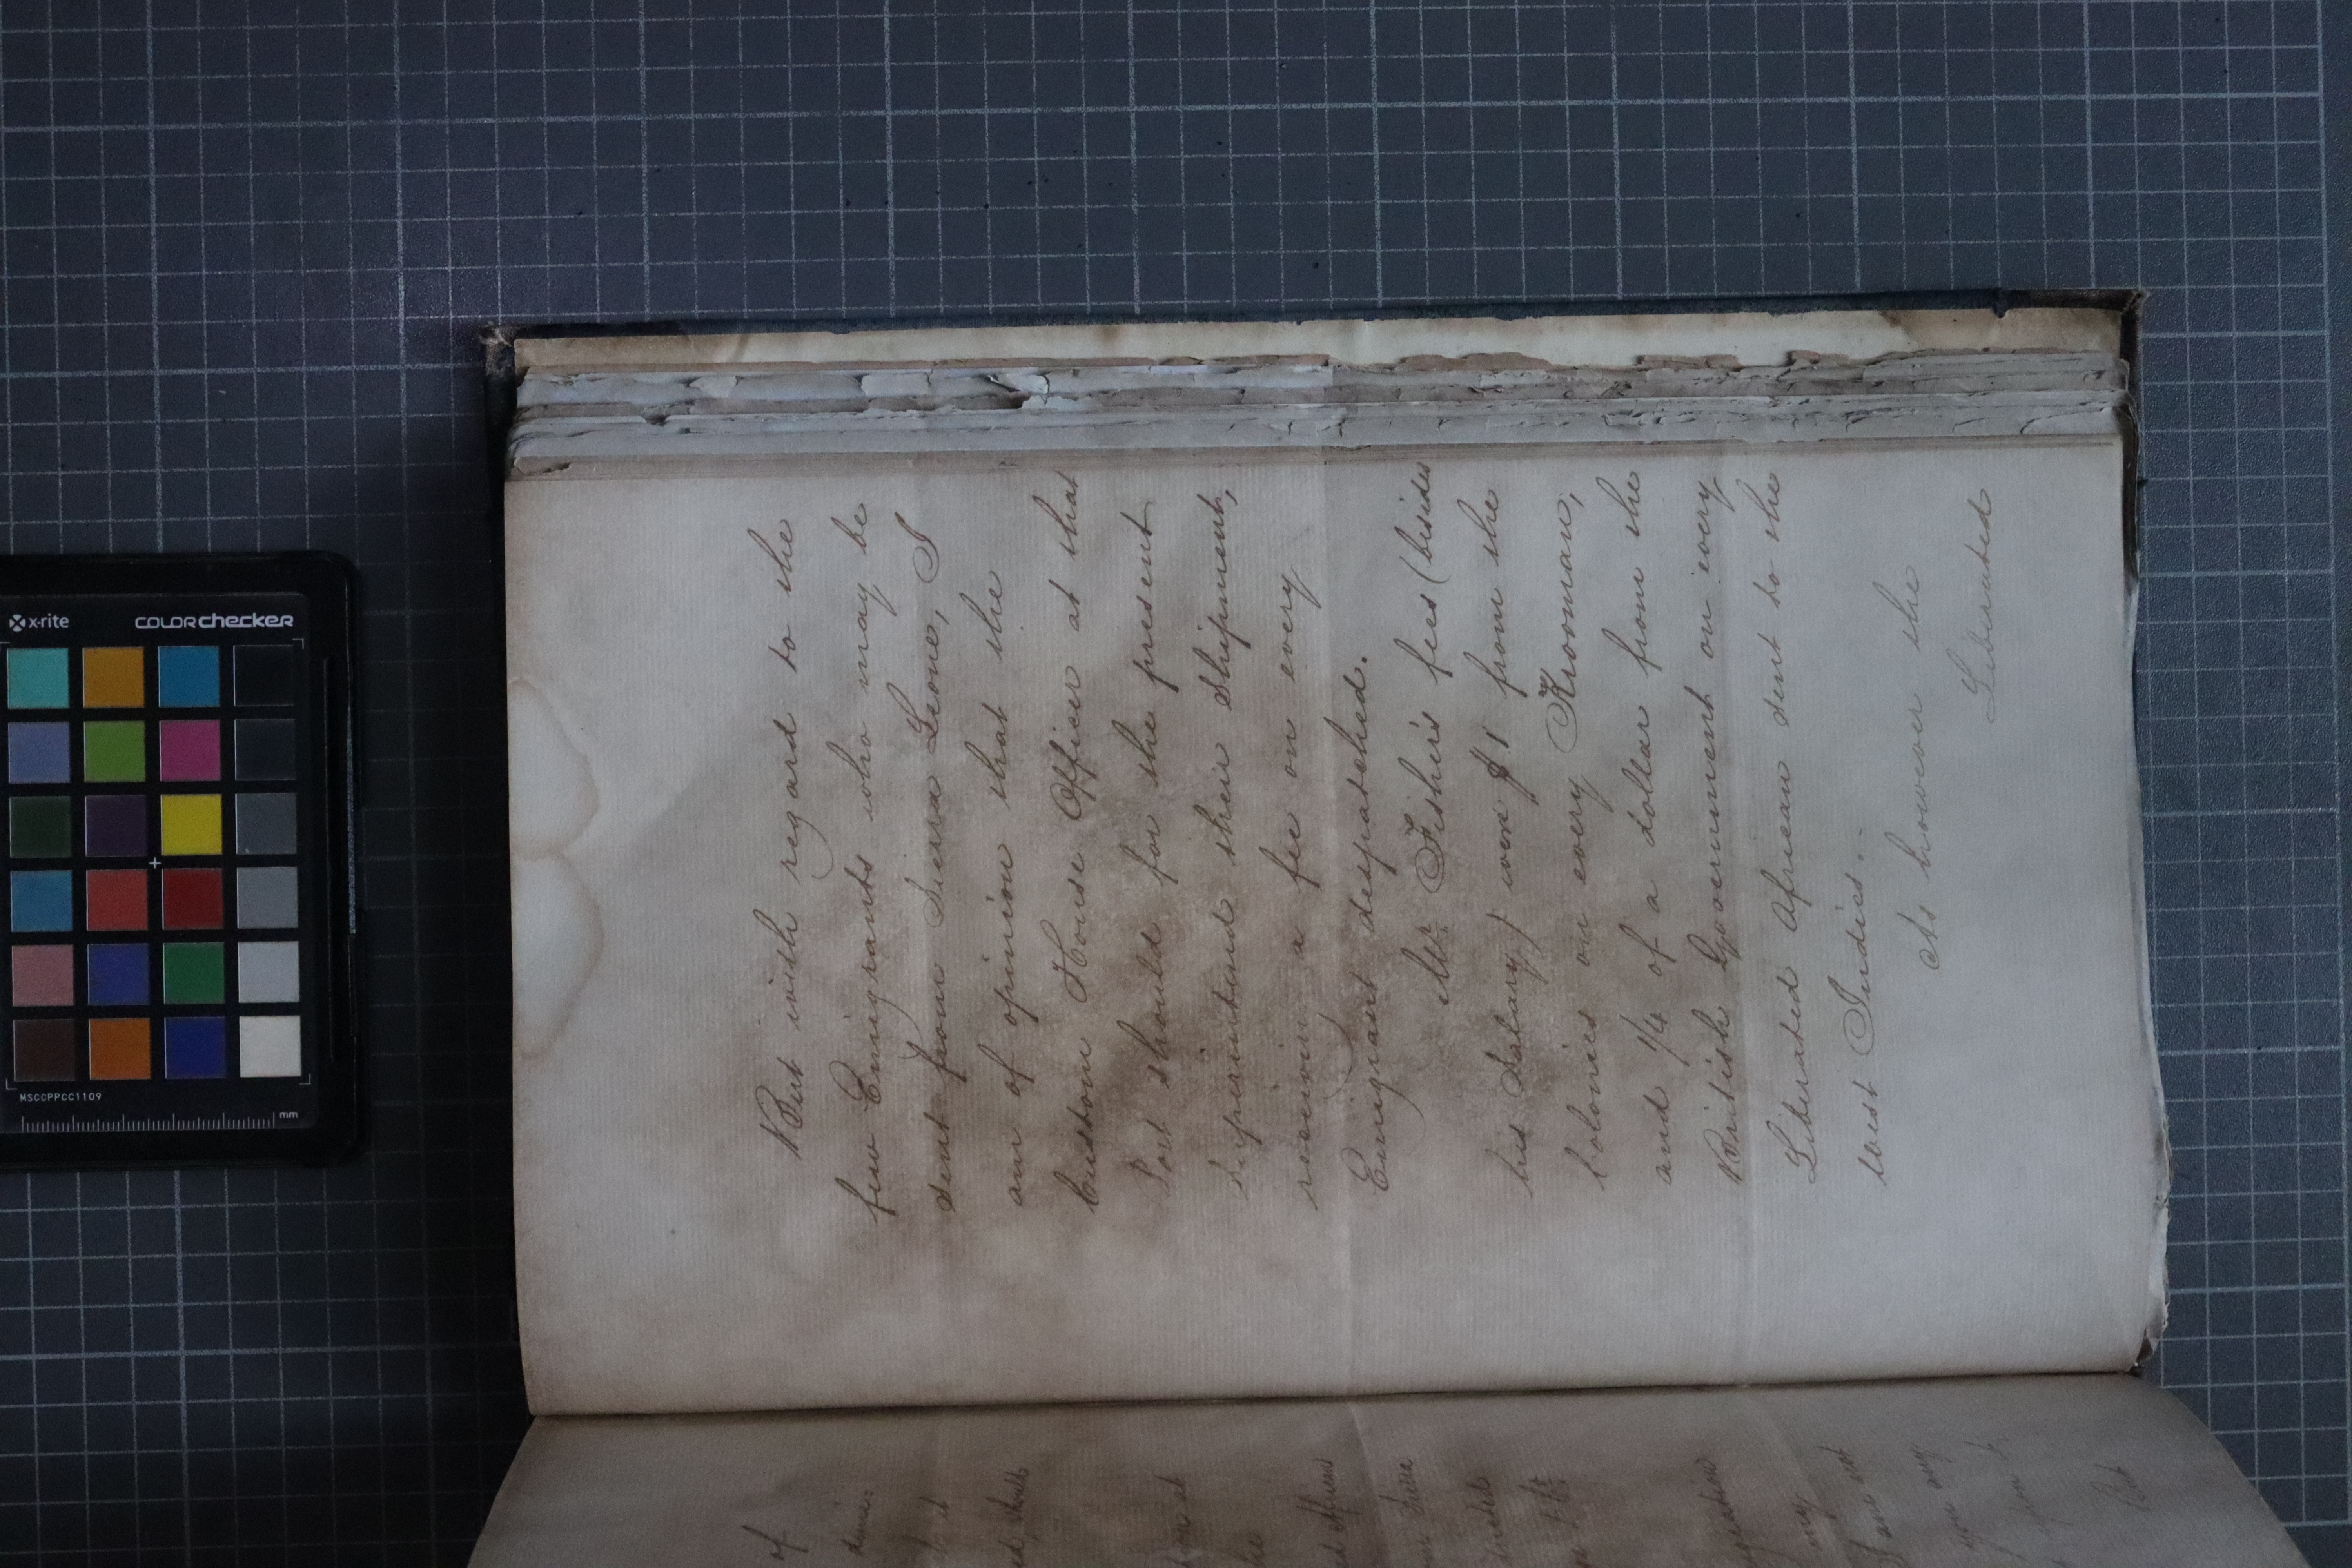 But with regard to the
few Emigrants who may be
sent from Sierra Leone, I
am of opinion that the
Custom House Officer at that
Port should for the present
superintend their shipment,
receiving a fee on every
Emigrant despatched.
Mr Fisher's fees (besides
his Salary) were $1 from the
Colonies on every Krooman,
and 1/4 of a dollar from the
British Government on every
Liberated African sent to the
West Indies.
As however the
Liberated
of
it
he
my
I am not
you any
upon it
But
x-rite
colorchecker
MSCCPPCC1109
mm